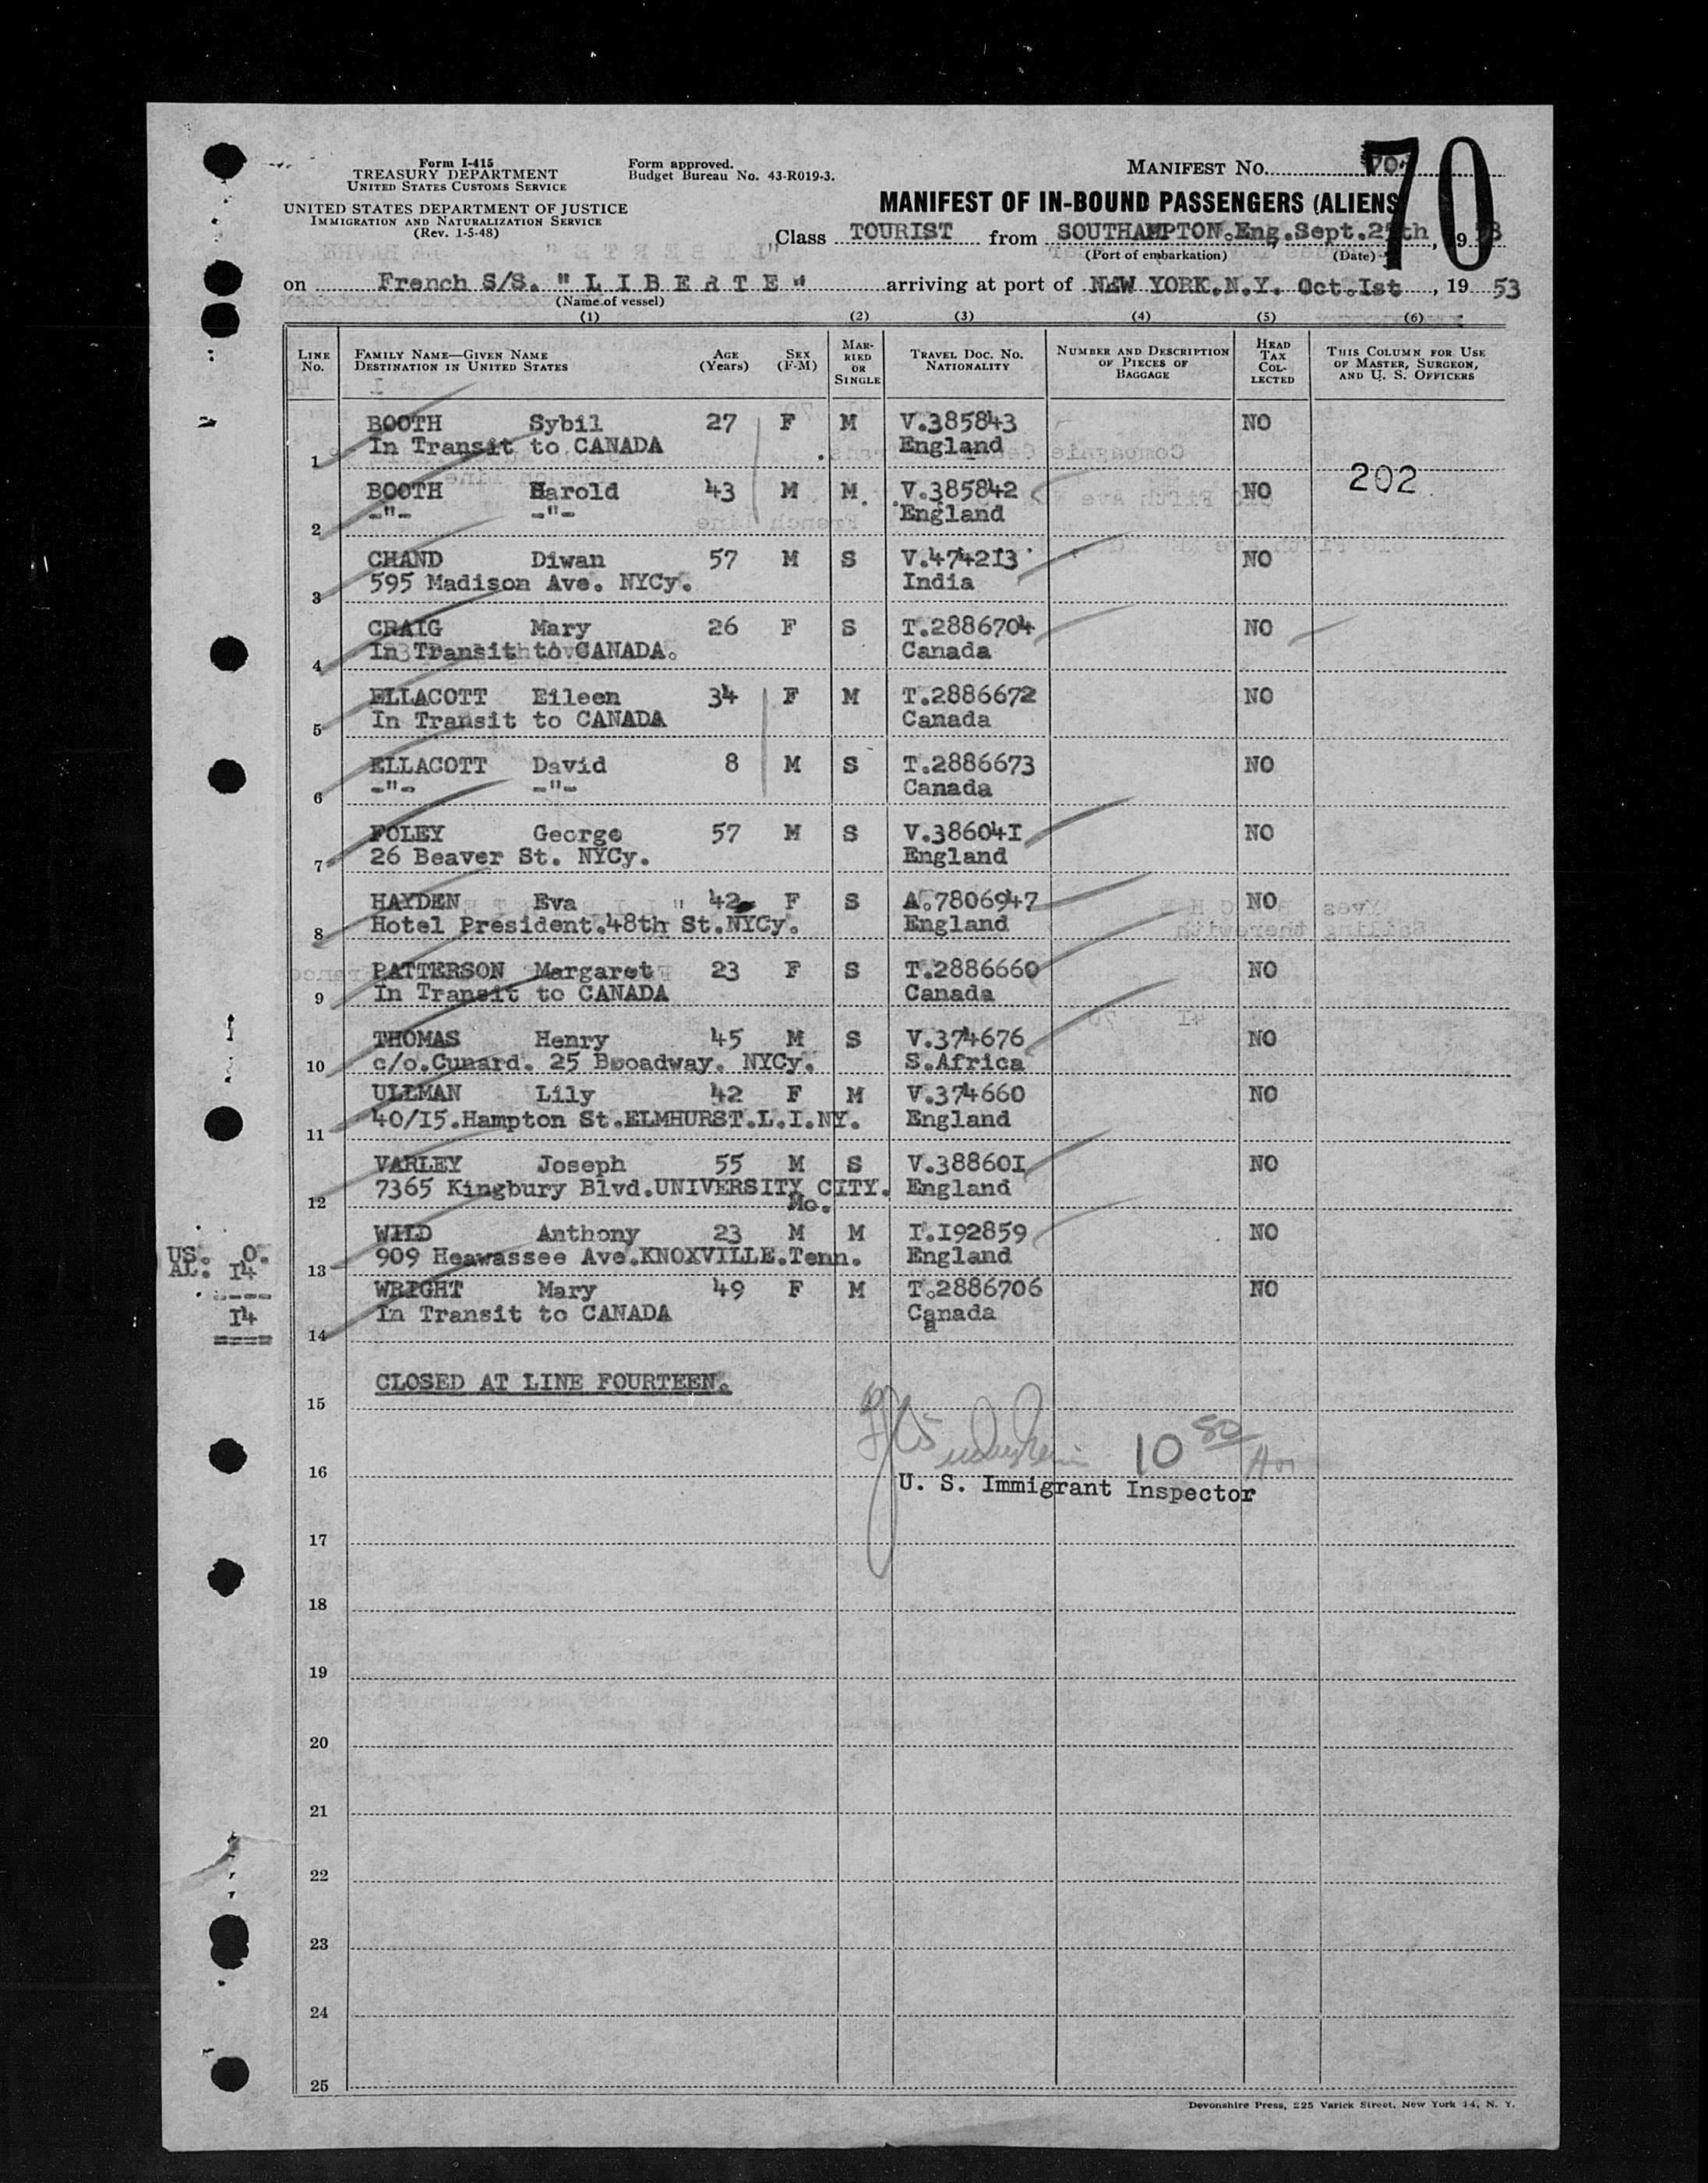 Form I-415
TREASURY DEPARTMENT
UNITED STATES CUSTOMS SERVICE
UNITED STATES DEPARTMENT OF JUSTICE
IMMIGRATION AND NATURALIZATION SERVICE
(Rev. 1-5-48)
Form approved.
Budget Bureau No. 43-R019-3.
MANIFEST No. 70
70
MANIFEST OF IN-BOUND PASSENGERS (ALIENS
Class TOURIST from SOUTHAMPTON.Eng.Sept. , 19
(Port of embarkation) (Date)
on French S/S. "LIBERTE" arriving at port of NEW YORK.N.Y. Oct.Ist , 19 53
(Name of vessel)
(1) (2) (3) (4) (5) (6)
LINE No. FAMILY NAME—GIVEN NAME DESTINATION IN UNITED STATES AGE (Years) SEX (F-M) MARRIED OR SINGLE TRAVEL DOC. NO. NATIONALITY NUMBER AND DESCRIPTION OF PIECES OF BAGGAGE HEAD TAX COLLECTED THIS COLUMN FOR USE OF MASTER, SURGEON, AND U. S. OFFICERS
BOOTH Sybil 27 F M V.385843 NO
1 In Transit to CANADA England
BOOTH Harold 43 M M V.385842 NO 202
2 -"- -"- England
CHAND Diwan 57 M S V.4742I3 NO
3 595 Madison Ave. NYCy. India
CRAIG Mary 26 F S T.2886704 NO
4 In Transit to CANADA. Canada
ELLACOTT Eileen 34 F M T.2886672 NO
5 In Transit to CANADA Canada
ELLACOTT David 8 M S T.2886673 NO
6 -"- -"- Canada
FOLEY George 57 M S V.38604I NO
7 26 Beaver St. NYCy. England
HAYDEN Eva 42 F S A.7806947 NO
8 Hotel President.48th St.NYCy. England
PATTERSON Margaret 23 F S T.2886660 NO
9 In Transit to CANADA Canada
THOMAS Henry 45 M S V.374676 NO
10 c/o.Cunard. 25 Broadway. NYCy. S.Africa
ULLMAN Lily 42 F M V.374660 NO
11 40/I5.Hampton St.ELMHURST.L.I.NY. England
VARLEY Joseph 55 M S V.38860I NO
12 7365 Kingbury Blvd.UNIVERSITY CITY. England
Mo.
WILD Anthony 23 M M I.I92859 NO
13 909 Heawassee Ave.KNOXVILLE.Tenn. England
WRIGHT Mary 49 F M T.2886706 NO
14 In Transit to CANADA Canada
US: 0.
AL: I4
----
I4
====
CLOSED AT LINE FOURTEEN.
15
16 10 50
U. S. Immigrant Inspector
17
18
19
20
21
22
23
24
25
Devonshire Press, 225 Varick Street, New York 14, N. Y.